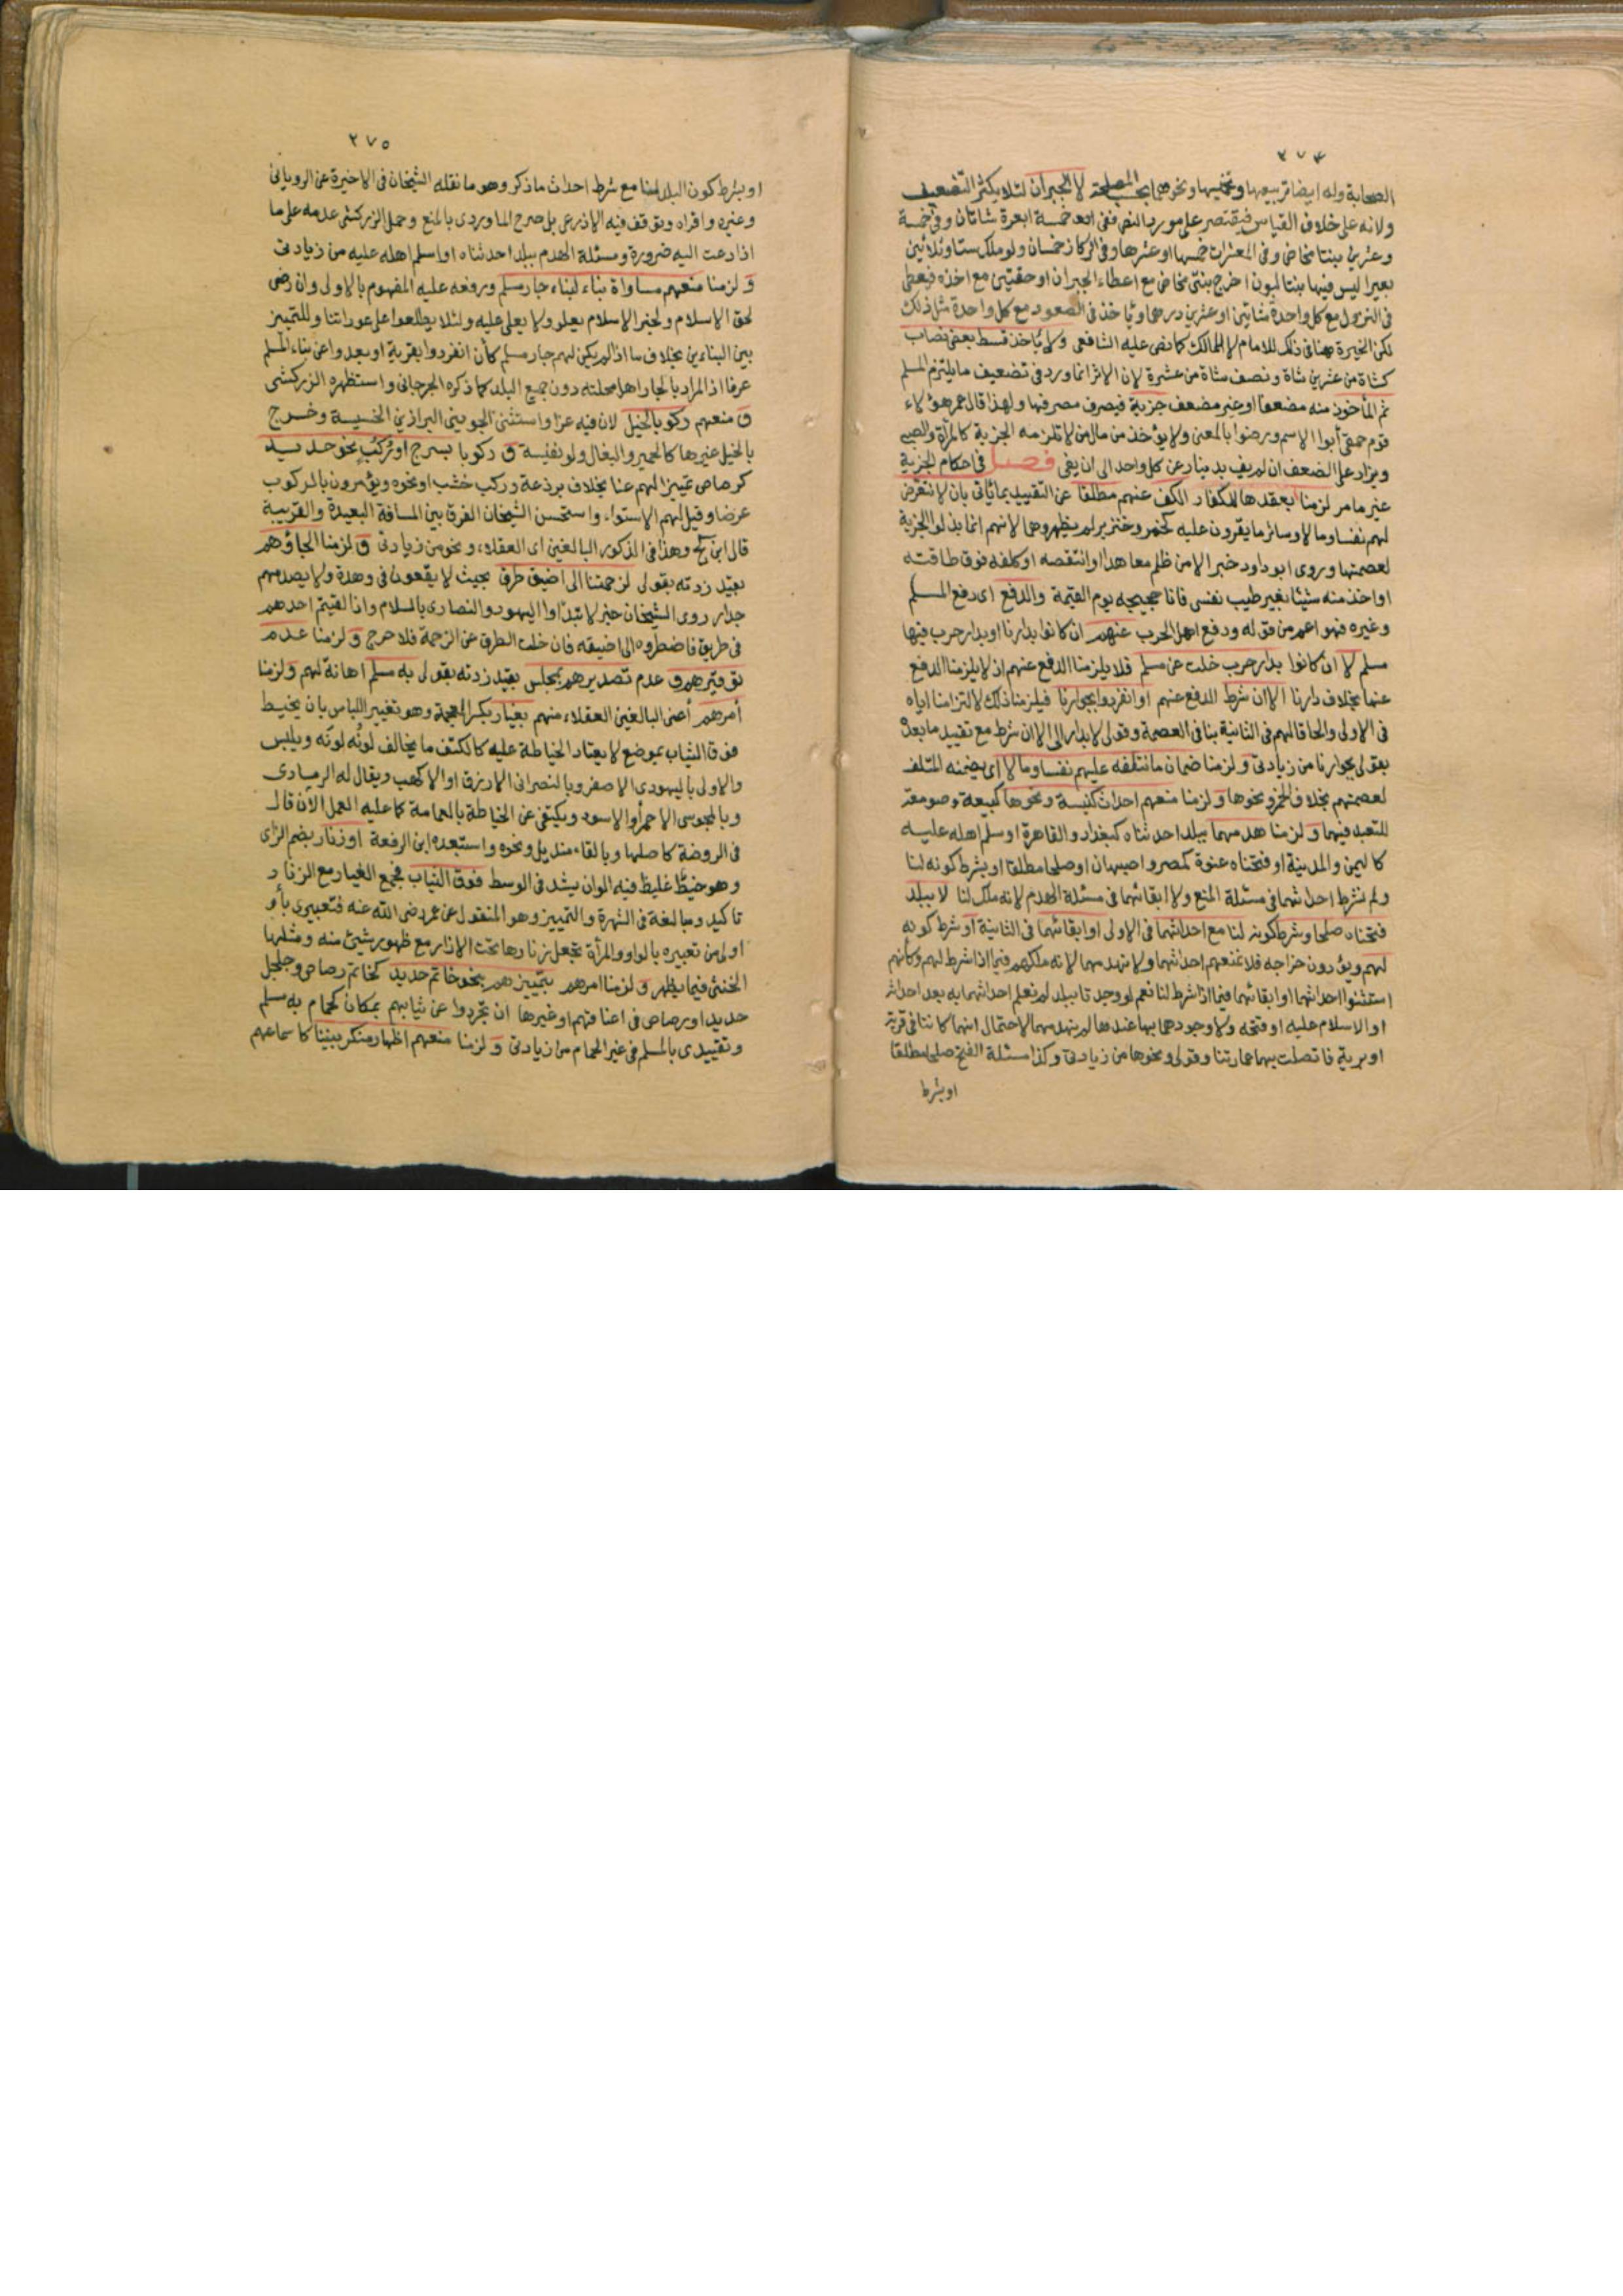 ٢٧٤
الصحابة وله ايضا تربيعها وتخميسها ونحوهما بحسب المصلحة لا الجبران لئلا يكثر التضعيف
ولانه على خلاف القياس فيقتصر على مورد النص ففى اربعة خمسة ابعرة شاتان وفى خمسة
وعشرين بنتا مخاض وفى المعشرات خمسها او عشرها وفى الركاز خمسان ولو ملك ستا وثلاثين
بعيرا ليس فيها بنتا لبون اخرج بنتى مخاض مع اعطاء الجبران او حقتين مع اخذه فيعطى
فى النزول مع كل واحدة شاتين او عشرين درهما ويأخذ فى الصعود مع كل واحدة مثل ذلك
لكن الخيرة هنا فى ذلك للامام لا للمالك كما نص عليه الشافعى ولا ياخذ قسط بعض نصاب
كشاة من عشرين شاة ونصف شاة من عشرة لان الاثر انما ورد فى تضعيف ما يلتزم المسلم
ثم المأخوذ منه مضعفا او غير مضعف جزية فيصرف مصرفها ولهذا قال عمر هؤلاء
قوم حمقى أبوا الاسم ورضوا بالمعنى ولا يؤخذ من مال من لا تلزمه الجزية كالمرأة والصبى
ويزاد على الضعف ان لم يف بدينار عن كل واحد الى ان يفى فصل فى احكام الجزية
غير ما مر لزمنا بعقدها للكفار الكف عنهم مطلقا عن التقييد بما يأتى بان لا نتعرض
لهم نفسا ومالا وسائر ما يقرون عليه كخمر وخنزير لم يظهروهما لانهم انما بذلوا الجزية
لعصمتها وروى ابو داود خبر الا من ظلم معاهدا او انتقصه او كلفه فوق طاقته
او اخذ منه شيئا بغير طيب نفس فانا حجيجه يوم القيمة والدفع اى دفع المسلم
وغيره فهو اعم من قوله ودفع اهل الحرب عنهم ان كانوا بدارنا او بدار حرب فيها
مسلم لا ان كانوا بدار حرب خلت عن مسلم فلا يلزمنا الدفع عنهم اذ لا يلزمنا الدفع
عنها بخلاف دارنا الا ان شرط الدفع عنهم او انفردوا بجوارنا فيلزمنا ذلك لالتزامنا اياه
فى الاولى والحاقا لهم فى الثانية بنا فى العصمة وقولى لا بدار الى الا ان شرط مع تقييد ما بعده
بقولى بجوارنا من زيادتى ولزمنا ضمان ما نتلفه عليهم نفسا ومالا اى يضمنه المتلف
لعصمتهم بخلاف الخمر ونحوها ولزمنا منعهم احداث كنيسة ونحوها كبيعة وصومعة
للتعبد فيهما ولزمنا هدمهما ببلد احدثناه كبغداد والقاهرة او سلم اهله عليه
كاليمن والمدينة او فتحناه عنوة كمصر واصبهان او صلحا مطلقا او بشرط كونه لنا
ولم نشرط احداثهما فى مسئلة المنع ولا ابقائهما فى مسئلة الهدم لانه ملك لنا لا ببلد
فتحناه صلحا وشرط كونه لنا مع احداثهما فى الاولى او ابقائهما فى الثانية او شرط كونه
لهم ويؤدون خراجه فلا نمنعهم احداثهما ولا نهدمهما لانه ملكهم فيما اذا شرط لهم وكانهم
استثنوا احداثهما او ابقائهما فيما اذا شرط لنا نعم لو وجدتا ببلد لم نعلم احداثهما به بعد احداثه
او الاسلام عليه او فتحه ولا وجودهما بها عندها لم نهدمهما لاحتمال انهما كانتا فى قرية
او برية فاتصلت بهما عمارتنا وقولى ونحوها من زيادتى وكذا مسئلة الفتح صلحا مطلقا
او بشرط
٢٧٥
او بشرط كون البلد لهنا مع شرط احداث ما ذكر وهو ما نقله الشيخان فى الاخيرة عن الرويانى
وغيره واقراه وتوقف فيه الاذرعى بل صرح الماوردى بالمنع وحمل الزركشى عدمه على ما
اذا دعت اليه ضرورة ومسئلة الهدم ببلد احدثناه او اسلم اهله عليه من زيادتى
ولزمنا منعهم مساواة بناء لبناء جار مسلم ورفعه عليه المفهوم بالاولى وان رضى
لحق الاسلام ولخبر الاسلام يعلو ولا يعلى عليه ولئلا يطلعوا على عوراتنا وللتمييز
بين البنائين بخلاف ما اذا لم يكن لهم جار مسلم كأن انفردوا بقرية او بعدوا عن بناء المسلم
عرفا اذ المراد بالجار اهل محلته دون جميع البلد كما ذكره الجرجانى واستظهره الزركشى
و منعهم ركوبا لخيل لان فيه عزا واستثنى الجوينى البراذين الخسيسة وخرج
بالخيل غيرها كالحمير والبغال ولو نفيسة و ركوبا بسرج او بركب نحو حديد
كرصاص تمييزا لهم عنا بخلاف برذعة وركب خشب او نحوه ويؤمرون بالركوب
عرضا وقيل لهم الاستواء واستحسن الشيخان الفرق بين المسافة البعيدة والقريبة
قال ابن كج وهذا فى الذكور البالغين اى العقلاء ونحو من زيادتى و لزمنا الجاؤهم
بقيد زدته بقولى لزحمتنا الى اضيق طرق بحيث لا يقعون فى وهدة ولا يصدمهم
جدار روى الشيخان خبر لا تبدؤا اليهود والنصارى بالسلام واذا لقيتم احدهم
فى طريق فاضطروه الى اضيقه فان خلت الطرق عن الزحمة فلا حرج ولزمنا عدم
توقيرهم و عدم تصديرهم بمجلس بقيد زدته بقولى به مسلم اهانة لهم ولزمنا
أمرهم أعنى البالغين العقلاء منهم بغيار بكسر المعجمة وهو تغيير اللباس بان يخيط
فوق الثياب بموضع لا يعتاد الخياطة عليه كالكتف ما يخالف لونُه لونَه ويلبس
والاولى باليهودى الاصفر وبالنصرانى الازرق او الاكهب ويقال له الرمادى
وبالمجوسى الاحمر أو الاسود ويكتفى عن الخياطة بالعمامة كما عليه العمل الآن قال
فى الروضة كاصلها وبالقاء منديل ونحوه واستبعده ابن الرفعة او زنار بضم الزاى
وهو خيط غليظ فيه الوان يشد فى الوسط فوق الثياب فجمع الغيار مع الزنار
تاكيد ومبالغة فى الشهرة والتمييز وهو المنقول عن عمر رضى الله عنه فتعبيرى بأو
اولى من تعبيره بالواو والمرأة تجعل زنارها تحت الازار مع ظهور شيئ منه ومثلها
الخنثى فيما يظهر ولزمنا امرهم بتمييزهم بنحو خاتم حديد كخاتم رصاص وجلجل
حديد او رصاص فى اعناقهم او غيرها ان تجردوا عن ثيابهم بمكان كحمام به مسلم
وتقييدى بالمسلم فى غير الحمام من زيادتى ولزمنا منعهم اظهار منكر بيننا كاسماعهم